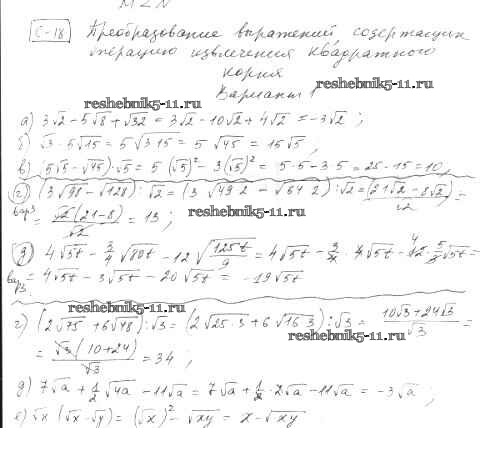 M Z N
С-18 Преобразование выражений, содержащих
операцию извлечения квадратного
корня
reshebnik5-11.ru
Варианты 1
reshebnik5-11.ru
а) 3√2 - 5√8 + √32 = 3√2 - 10√2 + 4√2 = -3√2 ;
б) √3 · 5√15 = 5√3·15 = 5√45 = 15√5 ,
в) (5√5 - √45)·√5 = 5(√5)² - 3(√5)² = 5·5 - 3·5 = 25 - 15 = 10,
г) (3√98 - √128) : √2 = (3√49·2 - √64·2) : √2 = (21√2 - 8√2)/√2 =
вар3 = √2(21-8)/√2 = 13 ;
reshebnik5-11.ru
д) 4√5t - 3/4 √80t - 12√125t/9 = 4√5t - 3/4 · 4√5t - 12 · 5/3 √5t =
4
вар3. = 4√5t - 3√5t - 20√5t = -19√5t
reshebnik5-11.ru
г) (2√75 + 6√48) : √3 = (2√25·3 + 6√16·3) : √3 = 10√3 + 24√3/√3 =
reshebnik5-11.ru
= √3(10+24)/√3 = 34 ;
д) 7√a + 1/2 √4a - 11√a = 7√a + 1/2 · 2√a - 11√a = -3√a ;
е) √x (√x - √y) = (√x)² - √xy = x - √xy